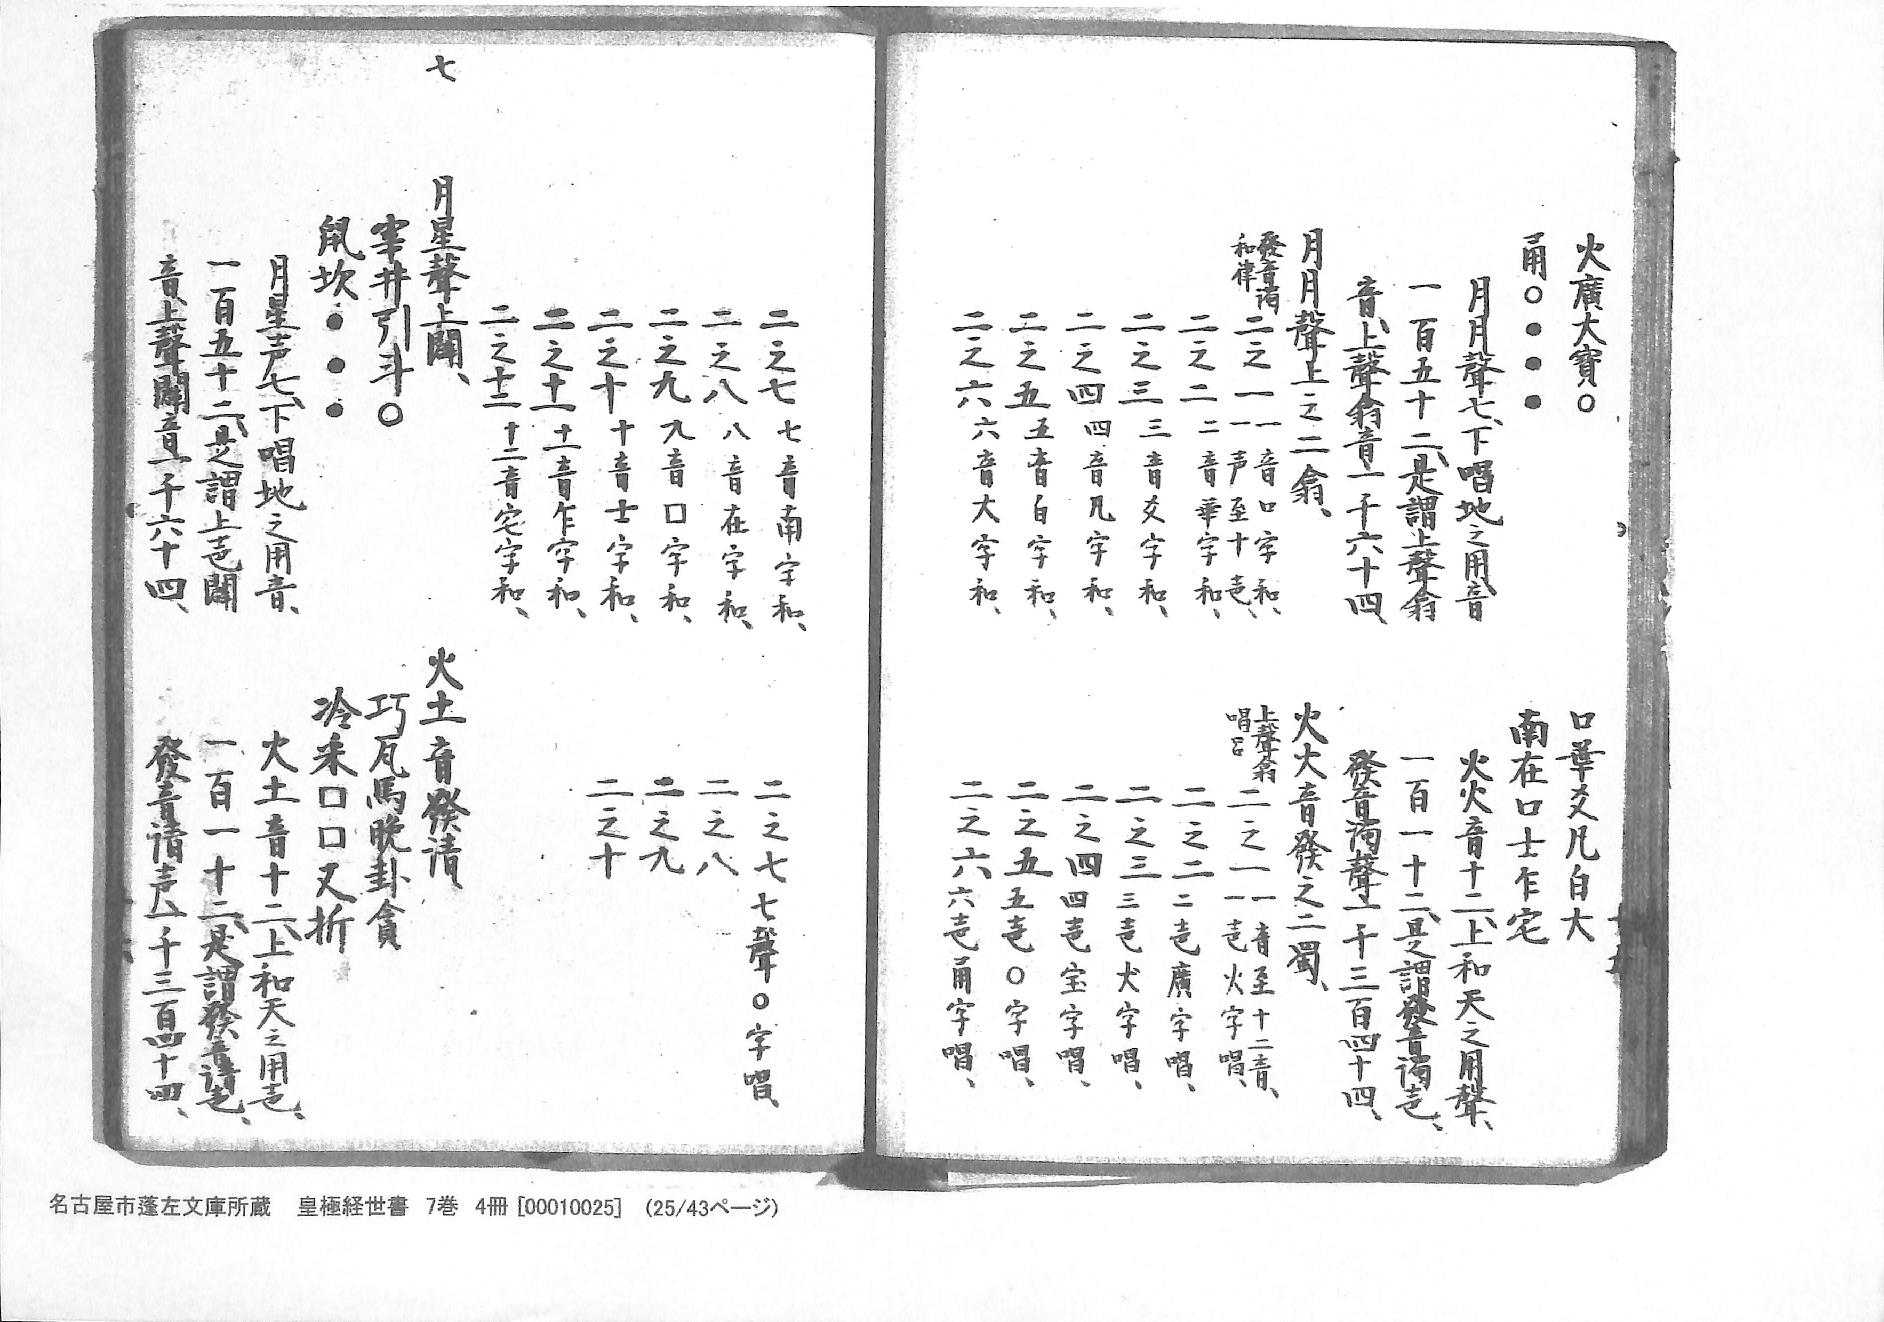 火廣大寳○
甬○●●●
月月聲七、下唱地之用音
一百五十二、是謂上聲翕
音、上聲翕音一千六十四、
月月聲上之二翕、
發音濁
和律
二之一 一音口字和、
一声至十㔫、
二之二 二音華字和、
二之三 三音爻字和、
二之四 四音凡字和、
二之五 五音白字和、
二之六 六音大字和、
口華爻凡白大
南在口士乍宅
火火音十二、上和天之用聲、
一百一十二、是謂發音濁声、
發音濁聲一千三百四十四、
火火音發之二濁、
上聲翕
唱呂
二之一 一音至十二音、
一声火字唱、
二之二 二声廣字唱、
二之三 三声犬字唱、
二之四 四声宝字唱、
二之五 五声○字唱、
二之六 六声甬字唱、
二之七 七音南字和、
二之八 八音在字和、
二之九 九音口字和、
二之十 十音士字和、
二之十一 十一音乍字和、
二之十二 十二音宅字和、
七
月星聲上闢、
宰井引斗○
鼠坎●●●
月星声七、下唱地之用音、
一百五十二、是謂上声闢
音、上聲闢音一千六十四、
二之七 七聲○字唱、
二之八
二之九
二之十
火土音發清
巧瓦馬晚卦貪
冷采口口叉折
火土音十二、上和天之用声、
一百一十二、是謂發音清声、
發音清声一千三百四十四、
名古屋市蓬左文庫所蔵 皇極経世書 7巻 4冊 [00010025] (25/43ページ)